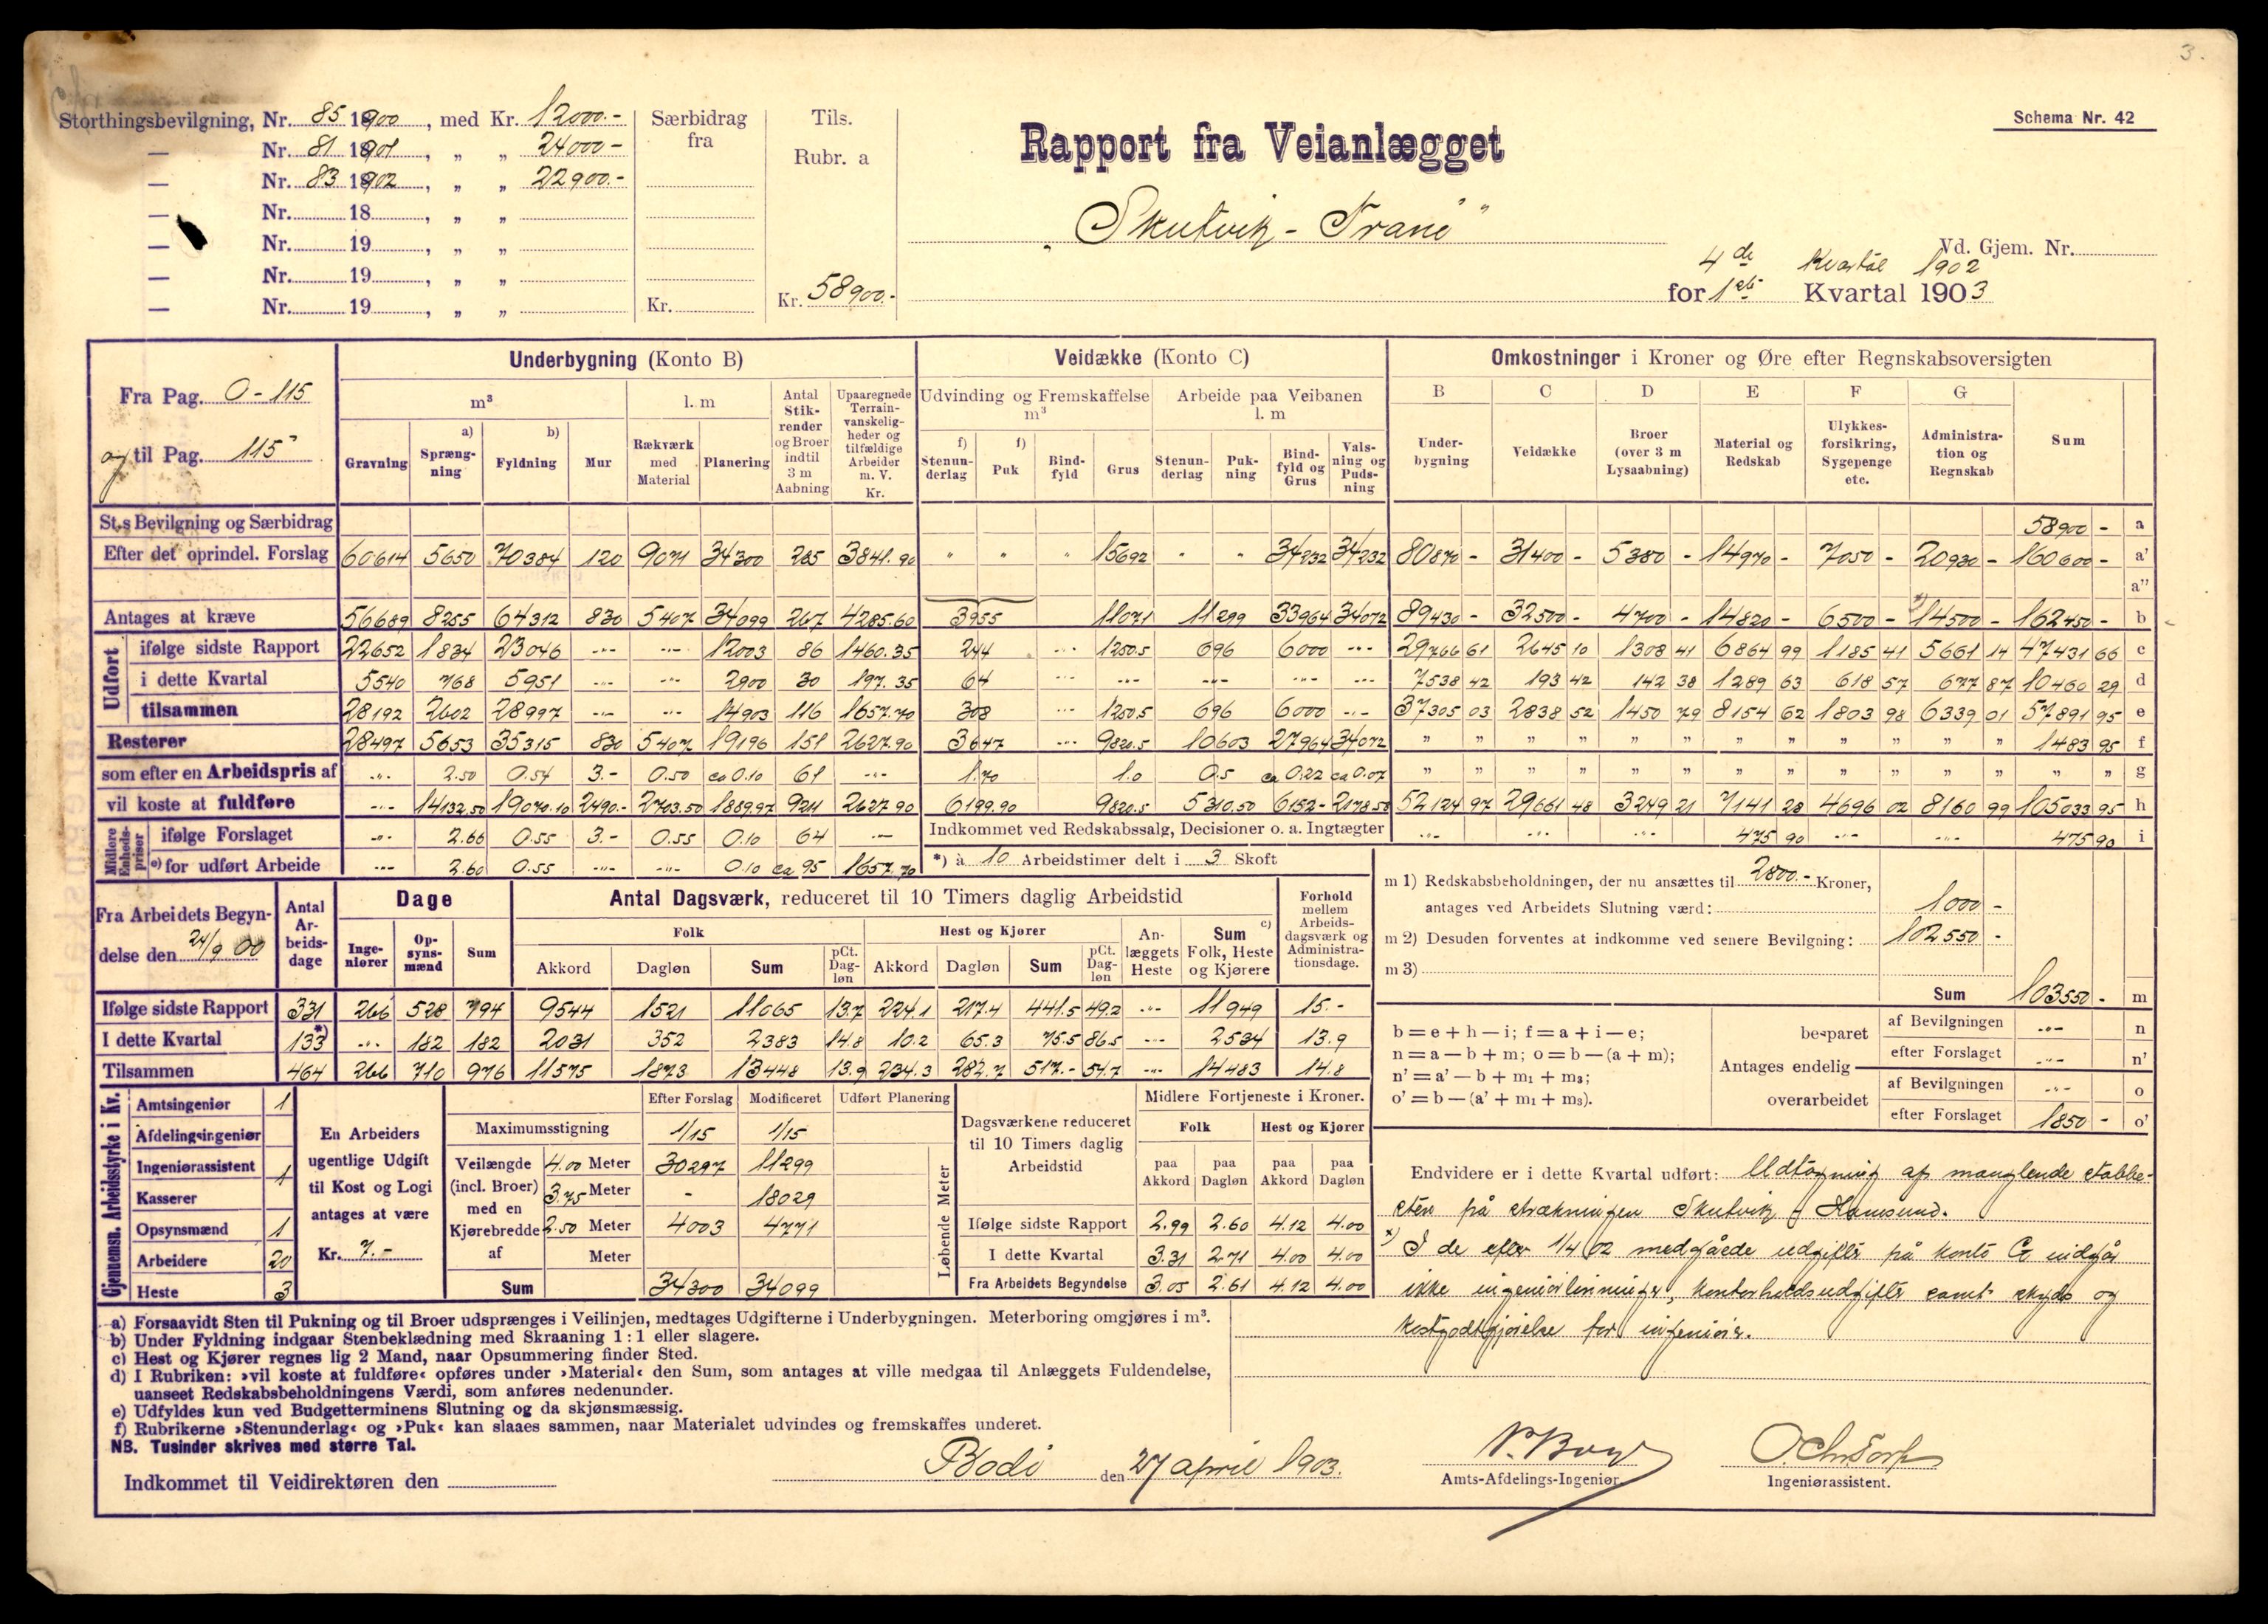 3.
Schema Nr. 42
Storthingsbevilgning, Nr. 85 1900, med Kr. 12000.-
— Nr. 81 1901, „ „ 24000-
— Nr. 83 1902, „ „ 22900.-
— Nr. 18 , „ „
— Nr. 19 , „ „
— Nr. 19 , „ „
— Nr. 19 , „ „
Særbidrag fra
Kr.
Tils.
Rubr. a
Kr. 58900.-
Rapport fra Veianlægget
„Skutvik - Tranö"
Vd. Gjem. Nr.
4de Kvartal 1902
for 1ste Kvartal 1903
Fra Pag. 0-115
og til Pag. 115
Underbygning (Konto B)
m³
l. m
Gravning
a) Sprængning
b) Fyldning
Mur
Rækværk med Material
Planering
Antal Stikrender og Broer indtil 3 m Aabning
Upaaregnede Terrainvanskeligheder og tilfældige Arbeider m. V. Kr.
Veidække (Konto C)
Udvinding og Fremskaffelse m³
Arbeide paa Veibanen l. m
f) Stenunderlag
f) Puk
Bindfyld
Grus
Stenunderlag
Pukning
Bindfyld og Grus
Valsning og Pudsning
Omkostninger i Kroner og Øre efter Regnskabsoversigten
B C D E F G
Underbygning
Veidække
Broer (over 3 m Lysaabning)
Material og Redskab
Ulykkesforsikring, Sygepenge etc.
Administration og Regnskab
Sum
St.s Bevilgning og Særbidrag 58900 - a
Efter det oprindel. Forslag 60614 5650 70384 120 9071 34300 285 3841.90 " " " 15692 " " 34232 34232 80870 - 31400 - 5380 - 14970 - 7050 - 20930 - 160600 - a'
a"
Antages at kræve 56689 8255 64312 830 5407 34099 267 4285.60 3955 11071 11299 33964 34072 89430 - 32500 - 4700 - 14820 - 6500 - 14500 - 162450 - b
Udført
ifølge sidste Rapport 22652 1834 23046 -"- -"- 12003 86 1460.35 244 -"- 1250.5 696 6000 -"- 29766 61 2645 10 1308 41 6864 99 1185 41 5661 14 47431 66 c
i dette Kvartal 5540 768 5951 -"- -"- 2900 30 197.35 64 -"- -"- -"- -"- -"- 7538 42 193 42 142 38 1289 63 618 57 677 87 10460 29 d
tilsammen 28192 2602 28997 -"- -"- 14903 116 1657.70 308 -"- 1250.5 696 6000 -"- 37305 03 2838 52 1450 79 8154 62 1803 98 6339 01 57891 95 e
Resterer 28497 5653 35315 830 5407 19196 151 2627.90 3647 -"- 9820.5 10603 27964 34072 " " " " " " " " " " " " 1483 95 f
som efter en Arbeidspris af -"- 2.50 0.54 3.- 0.50 ca 0.10 61 -"- 1.70 1.0 0.5 ca 0.22 ca 0.07 " " " " " " " " " " " " " " g
vil koste at fuldføre -"- 14132.50 19070.10 2490.- 2703.50 1889.97 9211 2627.90 6199.90 9820.5 5310.50 6152- 2178.50 52124 97 29661 48 3249 21 7141 28 4696 02 8160 99 105033 95 h
Midlere Enhedspriser
ifølge Forslaget -"- 2.66 0.55 3.- 0.55 0.10 64 -"-
Indkommet ved Redskabssalg, Decisioner o. a. Ingtægter -"- -"- -"- 475 90 -"- -"- 475 90 i
e) for udført Arbeide -"- 2.60 0.55 -"- -"- 0.10 ca 95 1657.70
*) à 10 Arbeidstimer delt i 3 Skoft
Fra Arbeidets Begyndelse den 24/9 00
Antal Arbeidsdage
Dage
Ingeniører
Opsynsmænd
Sum
Antal Dagsværk, reduceret til 10 Timers daglig Arbeidstid
Folk
Akkord Dagløn Sum pCt. Dagløn
Hest og Kjører
Akkord Dagløn Sum pCt. Dagløn
Anlæggets Heste
Sum c) Folk, Heste og Kjørere
Forhold mellem Arbeidsdagsværk og Administrationsdage.
Ifølge sidste Rapport 331 266 528 794 9544 1521 11065 13.7 224.1 217.4 441.5 49.2 -"- 11949 15.-
I dette Kvartal 133*) -"- 182 182 2031 352 2383 14.8 10.2 65.3 75.5 86.5 -"- 2534 13.9
Tilsammen 464 266 710 976 11575 1873 13448 13.9 234.3 282.7 517.- 54.7 -"- 14483 14.8
m 1) Redskabsbeholdningen, der nu ansættes til 2800.- Kroner,
antages ved Arbeidets Slutning værd: 1000 -
m 2) Desuden forventes at indkomme ved senere Bevilgning: 102550 -
m 3)
Sum 103550 - m
b = e + h — i; f = a + i — e;
n = a — b + m; o = b — (a + m);
n' = a' — b + m₁ + m₃;
o' = b — (a' + m₁ + m₃).
Antages endelig
besparet
af Bevilgningen -"- n
efter Forslaget -"- n'
overarbeidet
af Bevilgningen -"- o
efter Forslaget 1850 - o'
Gjennemsn. Arbeidsstyrke i Kv.
Amtsingeniør 1
Afdelingsingeniør
Ingeniørassistent 1
Kasserer
Opsynsmænd 1
Arbeidere 20
Heste 3
En Arbeiders
ugentlige Udgift
til Kost og Logi
antages at være
Kr. 7.-
Efter Forslag Modificeret Udført Planering
Maximumsstigning 1/15 1/15
Veilængde (incl. Broer) med en Kjørebredde af
4.00 Meter 30297 11299
3.75 Meter - 18029
2.50 Meter 4003 4771
Meter
Sum 34300 34099
Løbende Meter
Dagsværkene reduceret
til 10 Timers daglig
Arbeidstid
Midlere Fortjeneste i Kroner.
Folk
Hest og Kjører
paa Akkord paa Dagløn paa Akkord paa Dagløn
Ifølge sidste Rapport 2.99 2.60 4.12 4.00
I dette Kvartal 3.31 2.71 4.00 4.00
Fra Arbeidets Begyndelse 3.05 2.61 4.12 4.00
Endvidere er i dette Kvartal udført: Udtagning af manglende stabbe-
stén på strækningen Skutvik - Hamsund.
*) I de efter 1/4 02 medgåede udgifter på konto G indgår
ikke ingeniörlönninger, kontorholdsudgifter samt skyds og
kostgodtgjörelse for ingeniör.
a) Forsaavidt Sten til Pukning og til Broer udsprænges i Veilinjen, medtages Udgifterne i Underbygningen. Meterboring omgjøres i m³.
b) Under Fyldning indgaar Stenbeklædning med Skraaning 1 : 1 eller slagere.
c) Hest og Kjører regnes lig 2 Mand, naar Opsummering finder Sted.
d) I Rubriken: ›vil koste at fuldføre‹ opføres under ›Material‹ den Sum, som antages at ville medgaa til Anlæggets Fuldendelse,
uanseet Redskabsbeholdningens Værdi, som anføres nedenunder.
e) Udfyldes kun ved Budgetterminens Slutning og da skjønsmæssig.
f) Rubrikerne ›Stenunderlag‹ og ›Puk‹ kan slaaes sammen, naar Materialet udvindes og fremskaffes underet.
NB. Tusinder skrives med større Tal.
Indkommet til Veidirektøren den
Bodö den 27 april 1903.
Amts-Afdelings-Ingeniør
O. Chr. Torp
Ingeniørassistent.